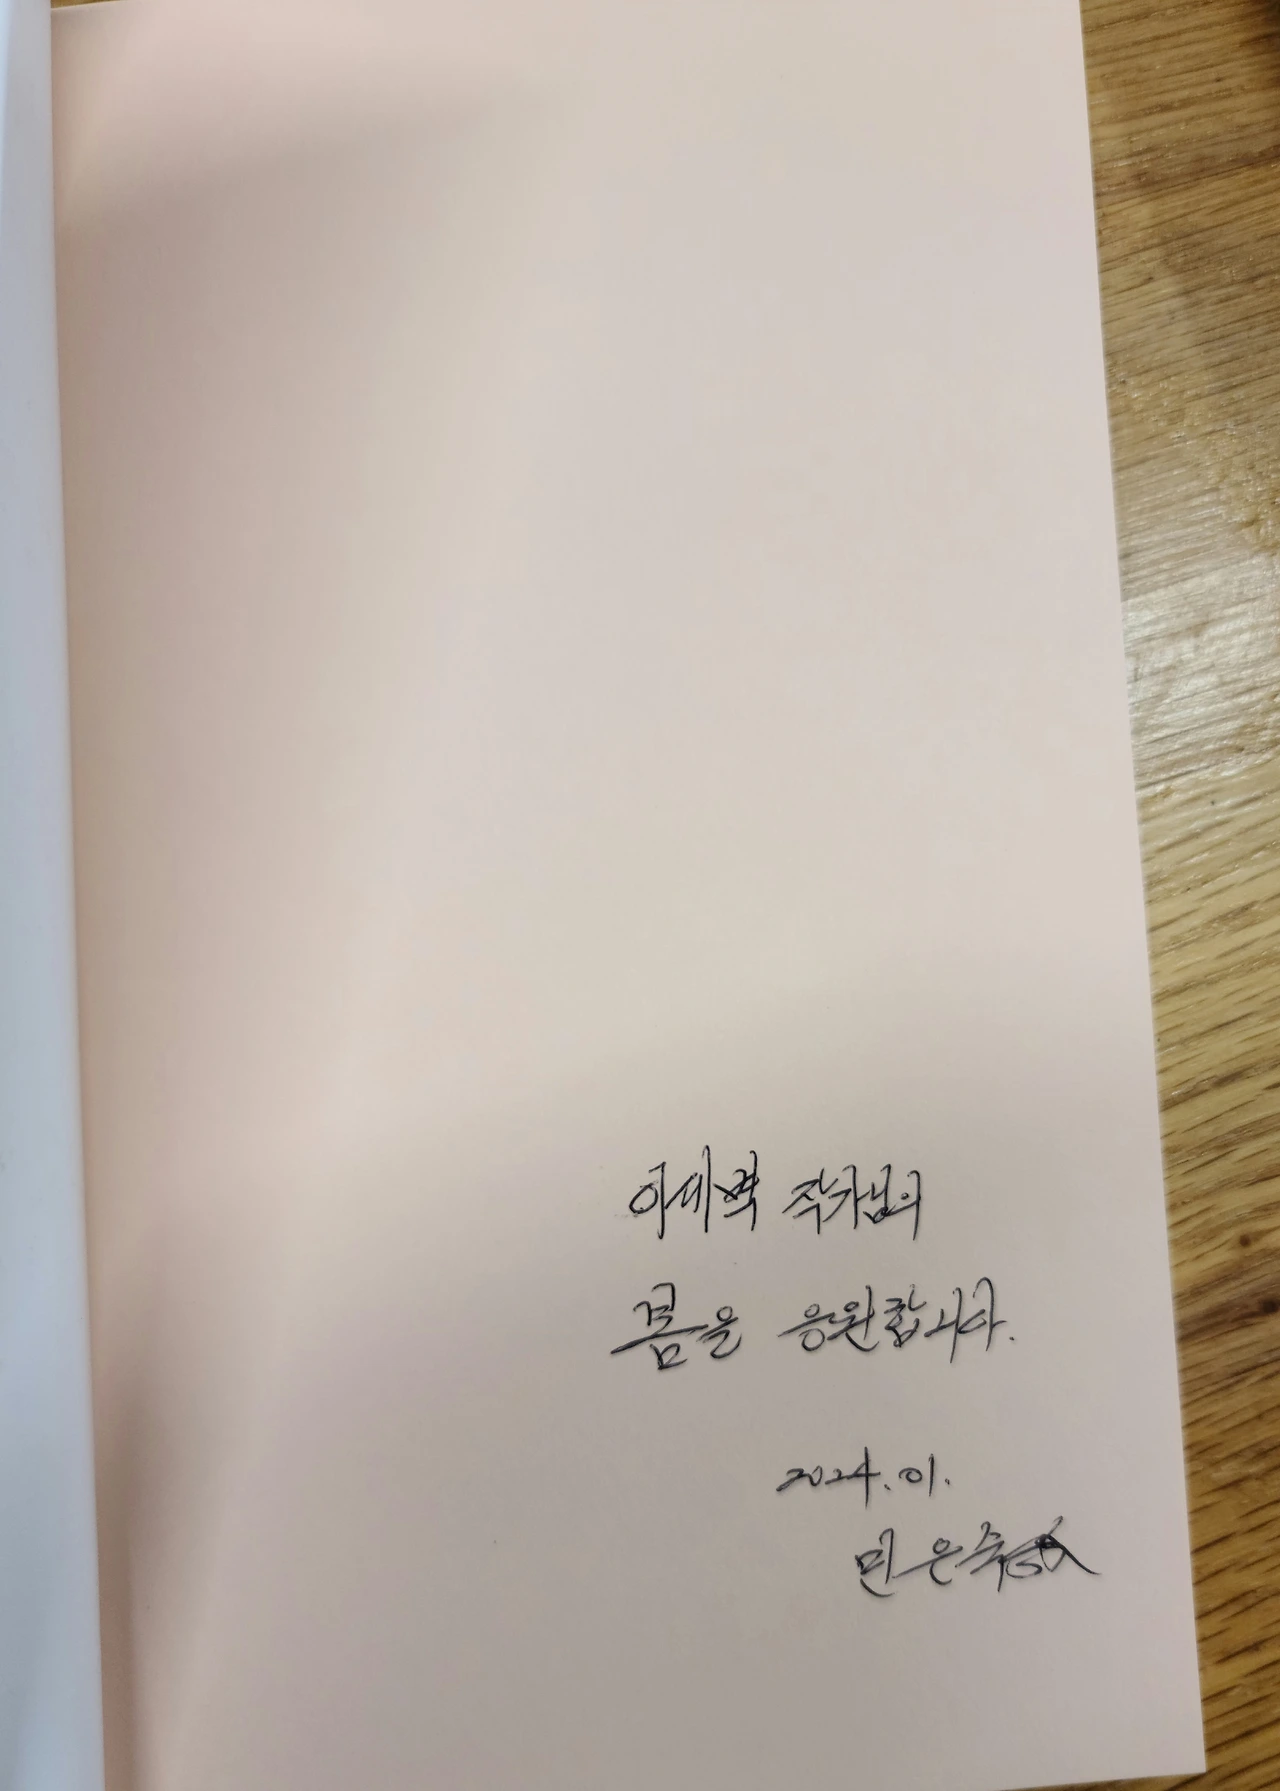 이새벽 작가님의
봄을 응원합니다.
2024. 01.
민은숙